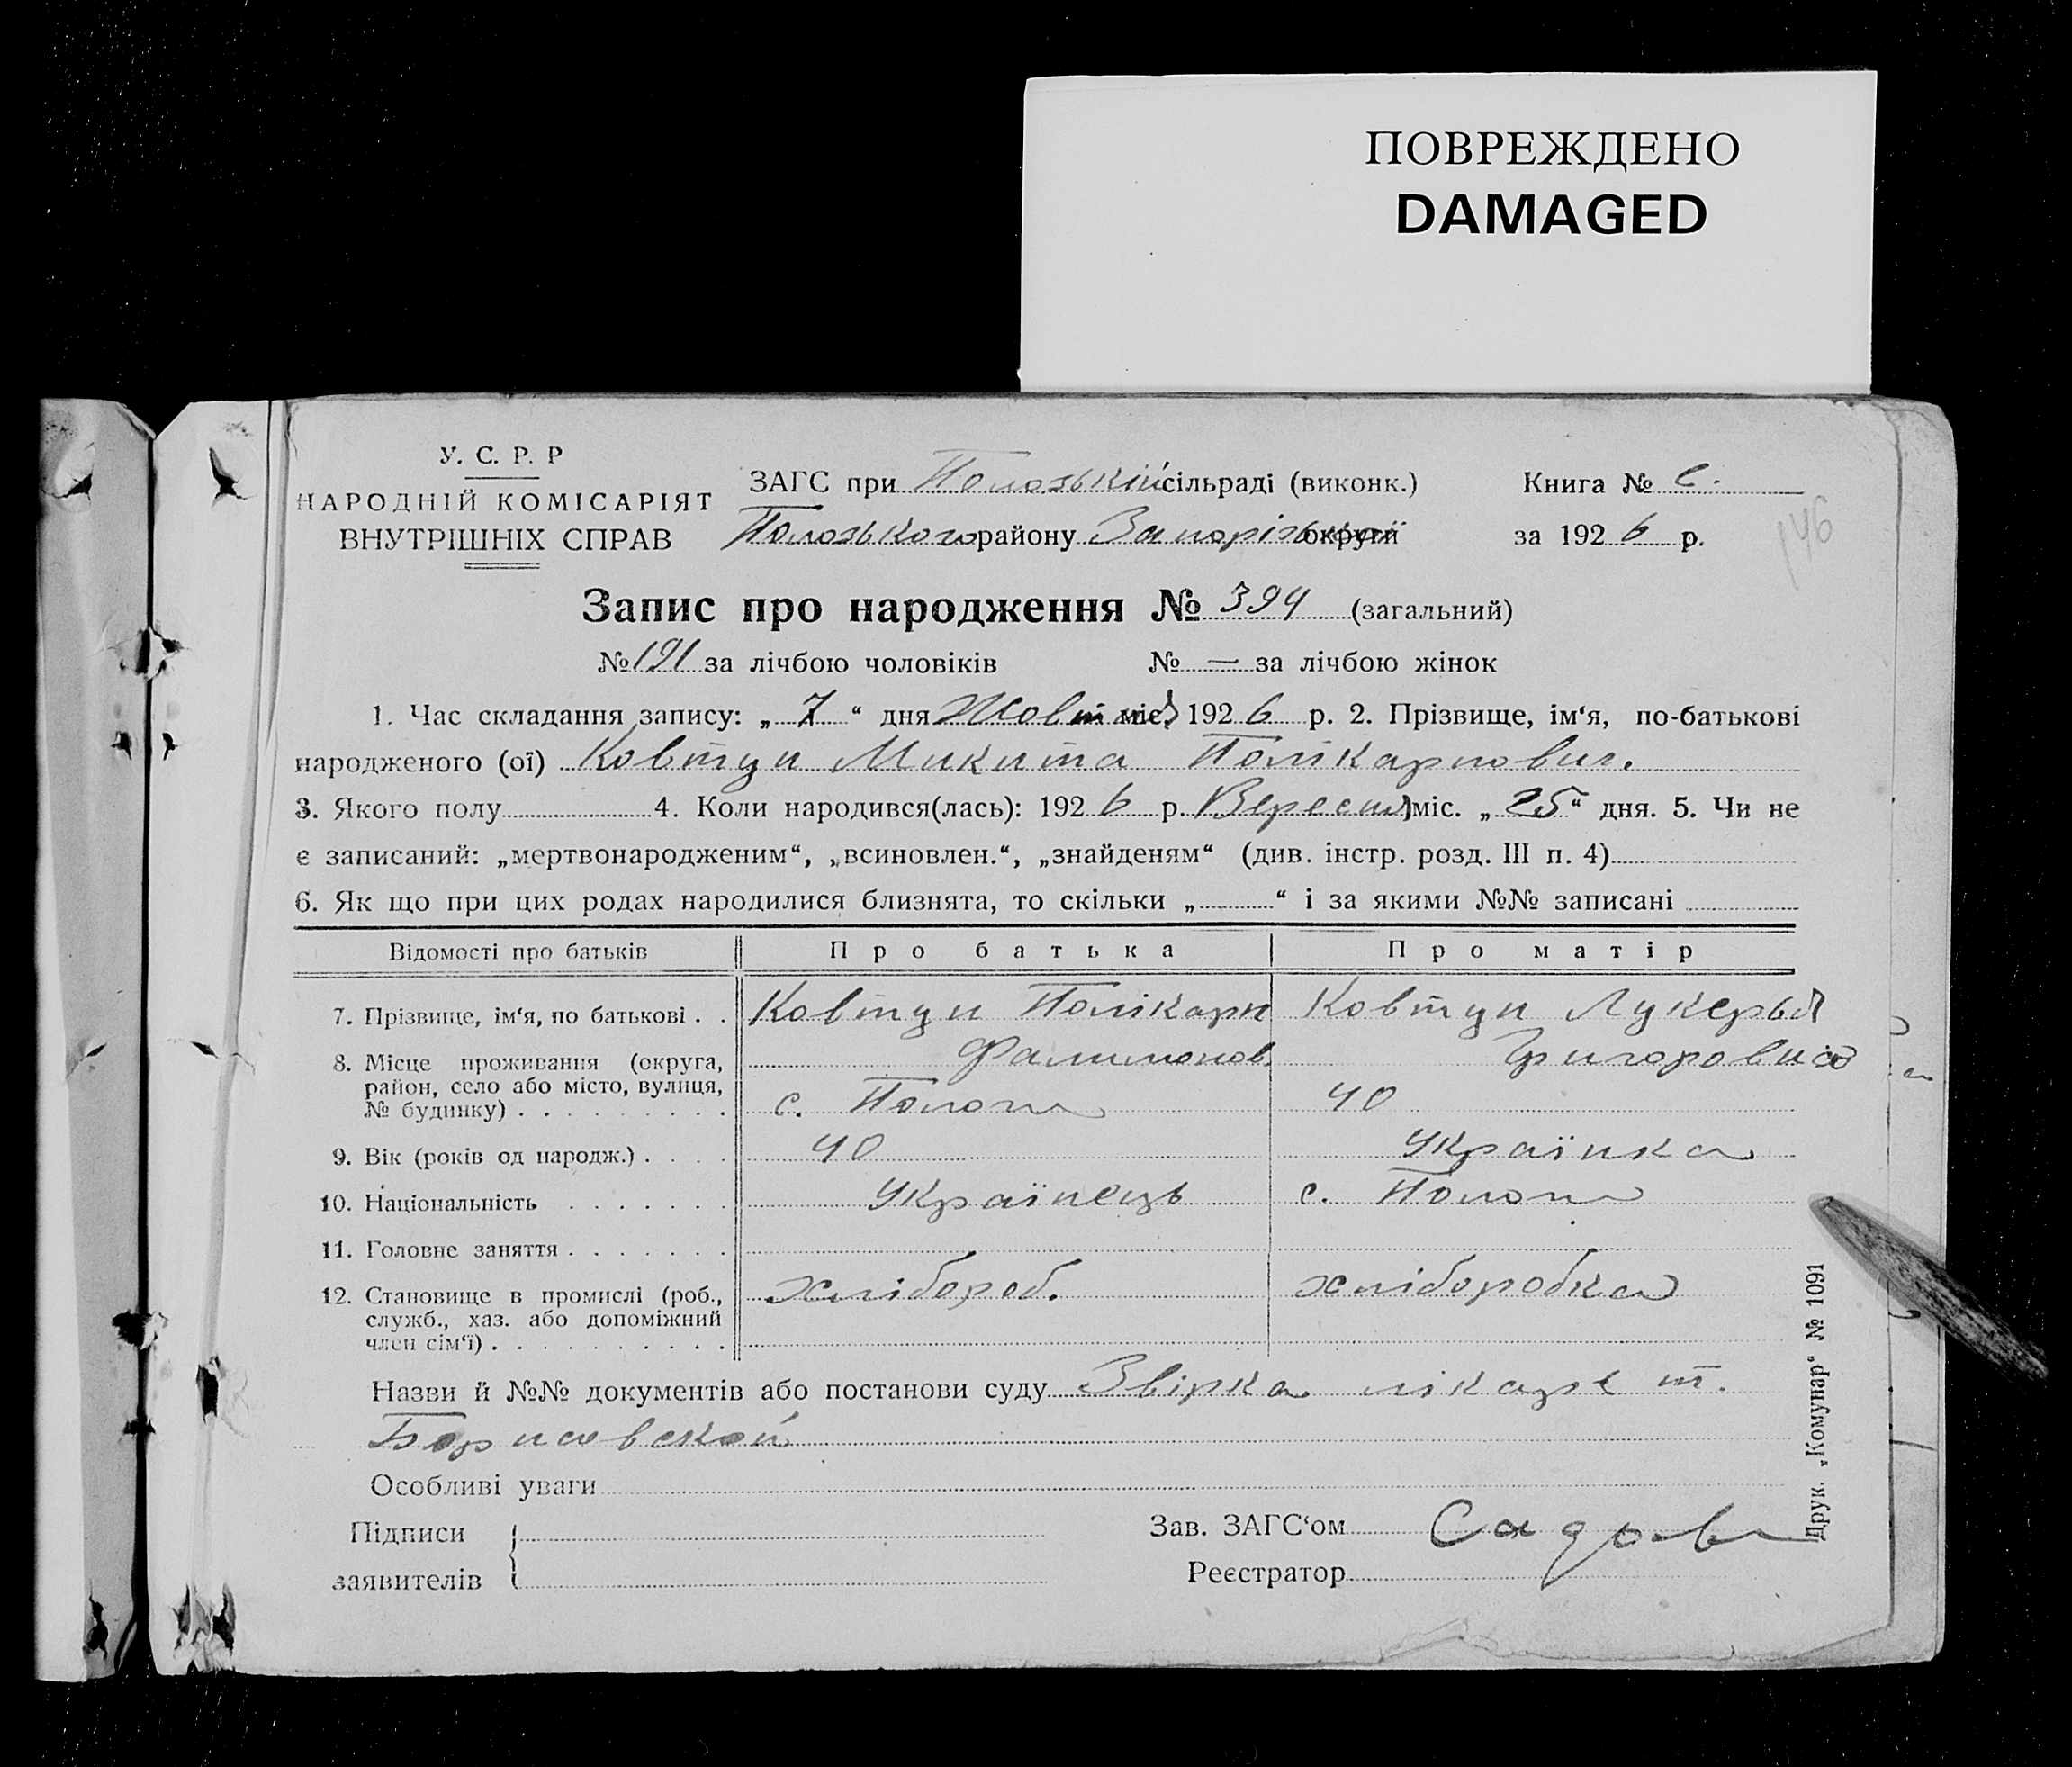 ПОВРЕЖДЕНО
DAMAGED
У. С. Р. Р
НАРОДНІЙ КОМІСАРІЯТ
ВНУТРІШНІХ СПРАВ
ЗАГС при Пологській сільраді (виконк.)
Пологського району Запорізької округи
Книга № С.
за 1926 р.
146
Запис про народження № 394 (загальний)
№ 191 за лічбою чоловіків № — за лічбою жінок
1. Час складання запису: „ 7 “ дня Жовтня міс. 1926 р. 2. Прізвище, ім‘я, по-батькові
народженого (ої) Ковтун Микита Полікарпович.
3. Якого полу 4. Коли народився(лась): 1926 р. Вересня міс. „ 25 “ дня. 5. Чи не
є записаний: „мертвонародженим“, „всиновлен.“, „знайденям“ (див. інстр. розд. III п. 4)
6. Як що при цих родах народилися близнята, то скільки „ “ і за якими №№ записані
Відомості про батьків Про батька Про матір
7. Прізвище, ім‘я, по батькові . . Ковтун Полікарп Ковтун Лукерья
Филимонов. Григоровна
8. Місце проживання (округа,
район, село або місто, вулиця,
№ будинку) . . . . . . . . . с. Пологи 40
9. Вік (років од народж.) . . . . 40 Українка
10. Національність . . . . . . . Українець с. Пологи
11. Головне заняття . . . . . . .
12. Становище в промислі (роб., хлібороб. хліборобка
служб., хаз. або допоміжний
член сім‘ї) . . . . . . . . . .
Назви й №№ документів або постанови суду Звірка лікаря т.
Борисовской
Особливі уваги
Підписи
заявителів
Зав. ЗАГС‘ом
Реєстратор
Друк. „Комунар“ № 1091